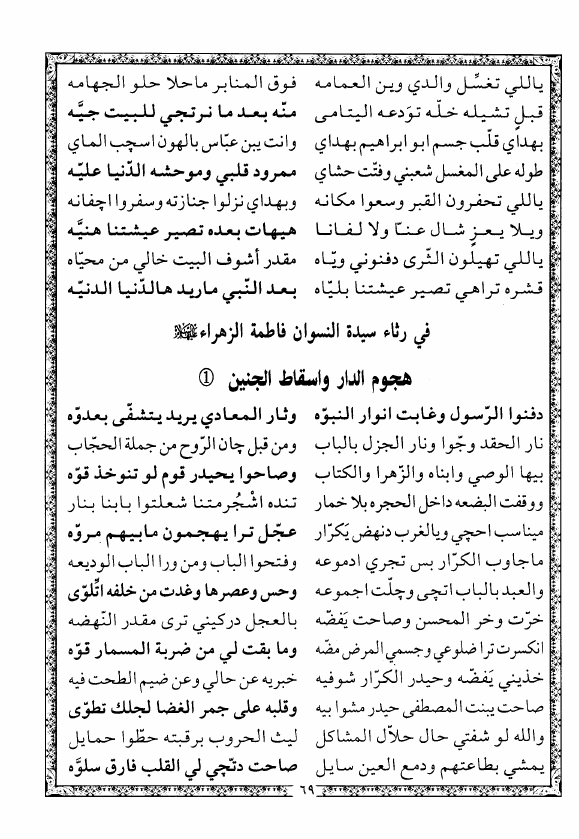 ياللي تغسِّل والدي وين العمامه فوق المنابر ماحلا حلو الجهامه
قبل تشيله خلّه تودعه اليتامى منّه بعد ما نرتجي للبيت جيَّه
بهداي قلّب جسم ابو ابراهيم بهداي وانت يبن عبّاس بالهون اسچب الماي
طوله على المغسل شعبني وفتّت حشاي ممرود قلبي وموحشه الدّنيا عليّه
ياللي تحفرون القبر وسعوا مكانه وبهداي نزلوا جنازته وسفروا اچفانه
ويلا يعز شال عنّا ولا لفانا هيهات بعده تصير عيشتنا هنيَّه
ياللي تهيلون الثّرى دفنوني ويّاه مقدر أشوف البيت خالي من محيّاه
قشره تراهي تصير عيشتنا بليّاه بعد النّبي ماريد هالدّنيا الدنيّه
في رثاء سيدة النسوان فاطمة الزهراء
هجوم الدار واسقاط الجنين ①
دفنوا الرّسول وغابت انوار النبوّه وثار المعادي يريد يتشفّى بعدوّه
نار الحقد وجّوا ونار الجزل بالباب ومن قبل چان الرّوح من جملة الحجّاب
بيها الوصي وابناه والزّهرا والكتاب وصاحوا يحيدر قوم لو تنوخذ قوّه
ووقفت البضعه داخل الحجره بلا خمار تنده اشْجُرمتنا شعلتوا بابنا بنار
ميناسب احچي ويالغرب دنهض يَكرّار عجّل ترا يهجمون مابيهم مروّه
ماجاوب الكرّار بس تجري ادموعه وفتحوا الباب ومن ورا الباب الوديعه
والعبد بالباب اتچى وچلّت اجموعه وحس وعصرها وغدت من خلفه اتِّلوّى
خرّت وخر المحسن وصاحت يَفضّه بالعجل دركيني ترى مقدر النّهضه
انكسرت ترا ضلوعي وجسمي المرض مضّه وما بقت لي من ضربة المسمار قوّه
خذيني يَفضّه وحيدر الكرّار شوفيه خبريه عن حالي وعن ضيم الطحت فيه
صاحت يبنت المصطفى حيدر مشوا بيه وقلبه على جمر الغضا لجلك تطوّى
والله لو شفتي حال حلاّل المشاكل ليث الحروب برقبته حطّوا حمايل
يمشي بطاعتهم ودمع العين سايل صاحت دنّچي لي القلب فارق سلوَّه
٦٩